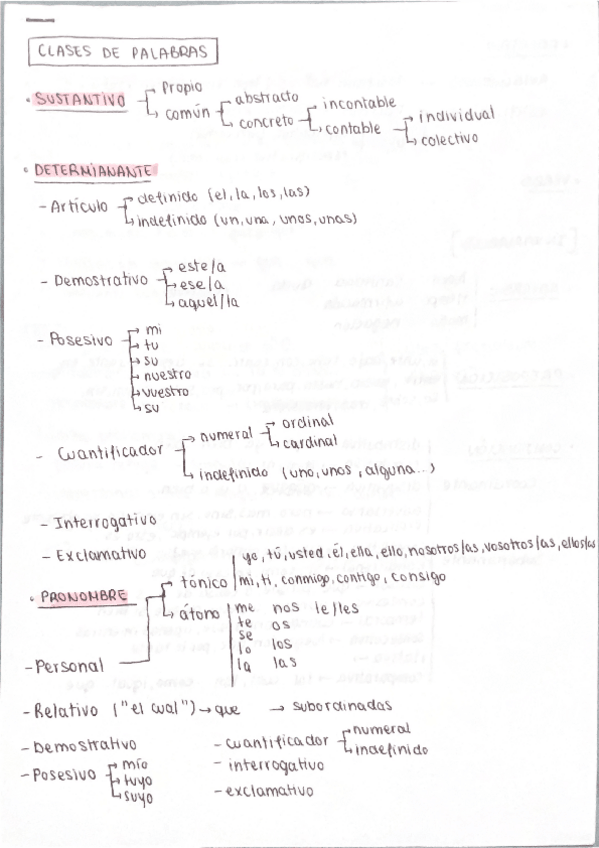 CLASES DE PALABRAS
· SUSTANTIVO → Propio
→ común → abstracto
→ concreto → incontable
→ contable → individual
→ colectivo
· DETERMIANANTE
- Artículo → definido (el, la, los, las)
→ indefinido (un, una, unos, unas)
- Demostrativo → este/a
→ ese/a
→ aquel/la
- Posesivo → mi
→ tu
→ su
→ nuestro
→ vuestro
→ su
- Cuantificador → numeral → ordinal
→ cardinal
→ indefinido (uno, unos, alguna...)
- Interrogativo
- Exclamativo
· PRONOMBRE
- Personal → tónico | yo, tú, usted, él, ella, ello, nosotros/as, vosotros/as, ellos/as
mi, ti, conmigo, contigo, consigo
→ átono | me nos le/les
te os
se
lo los
la las
- Relativo ("el cual") → que → subordinadas
- Demostrativo
- Posesivo → mío
→ tuyo
→ suyo
- cuantificador → numeral
→ indefinido
- interrogativo
- exclamativo